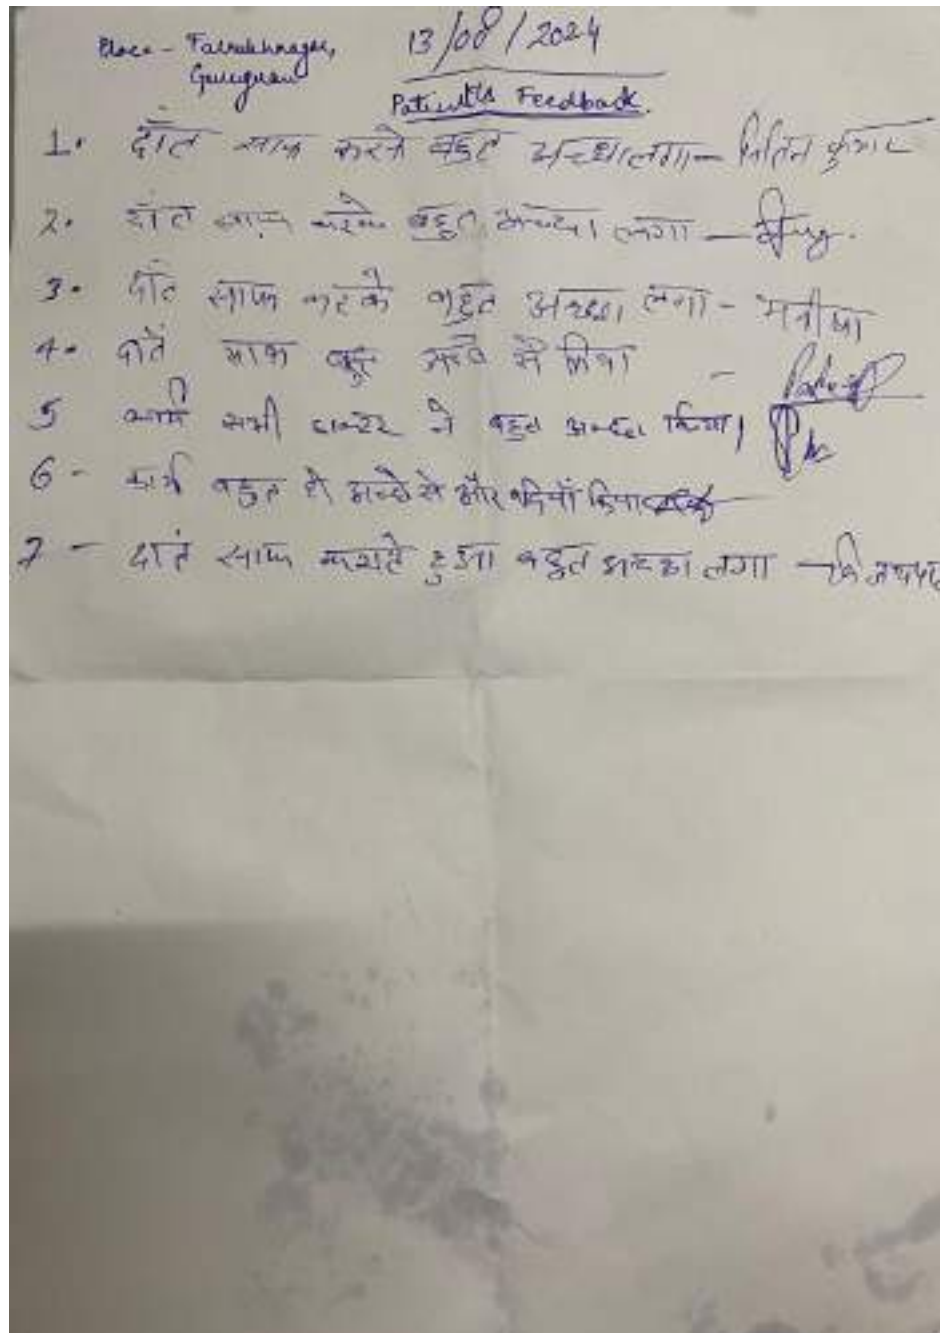 Place - Farrukhnagar, 13/08/2024
Gurugram
Patient's Feedback.
1. दाँत साफ करके बहुत अच्छा लगा - नितिन कुमार
2. दांत साफ करके बहुत अच्छा लगा -
3. दाँत साफ करके बहुत अच्छा लगा - मनीषा
4. दातें साफ बहुत अच्छे से किया -
5 कार्य सभी डाक्टर ने बहुत अच्छा किया।
6 - कार्य बहुत ही अच्छे से और बढियाँ किया
7 - दांत साफ कराते हुआ बहुत अच्छा लगा -